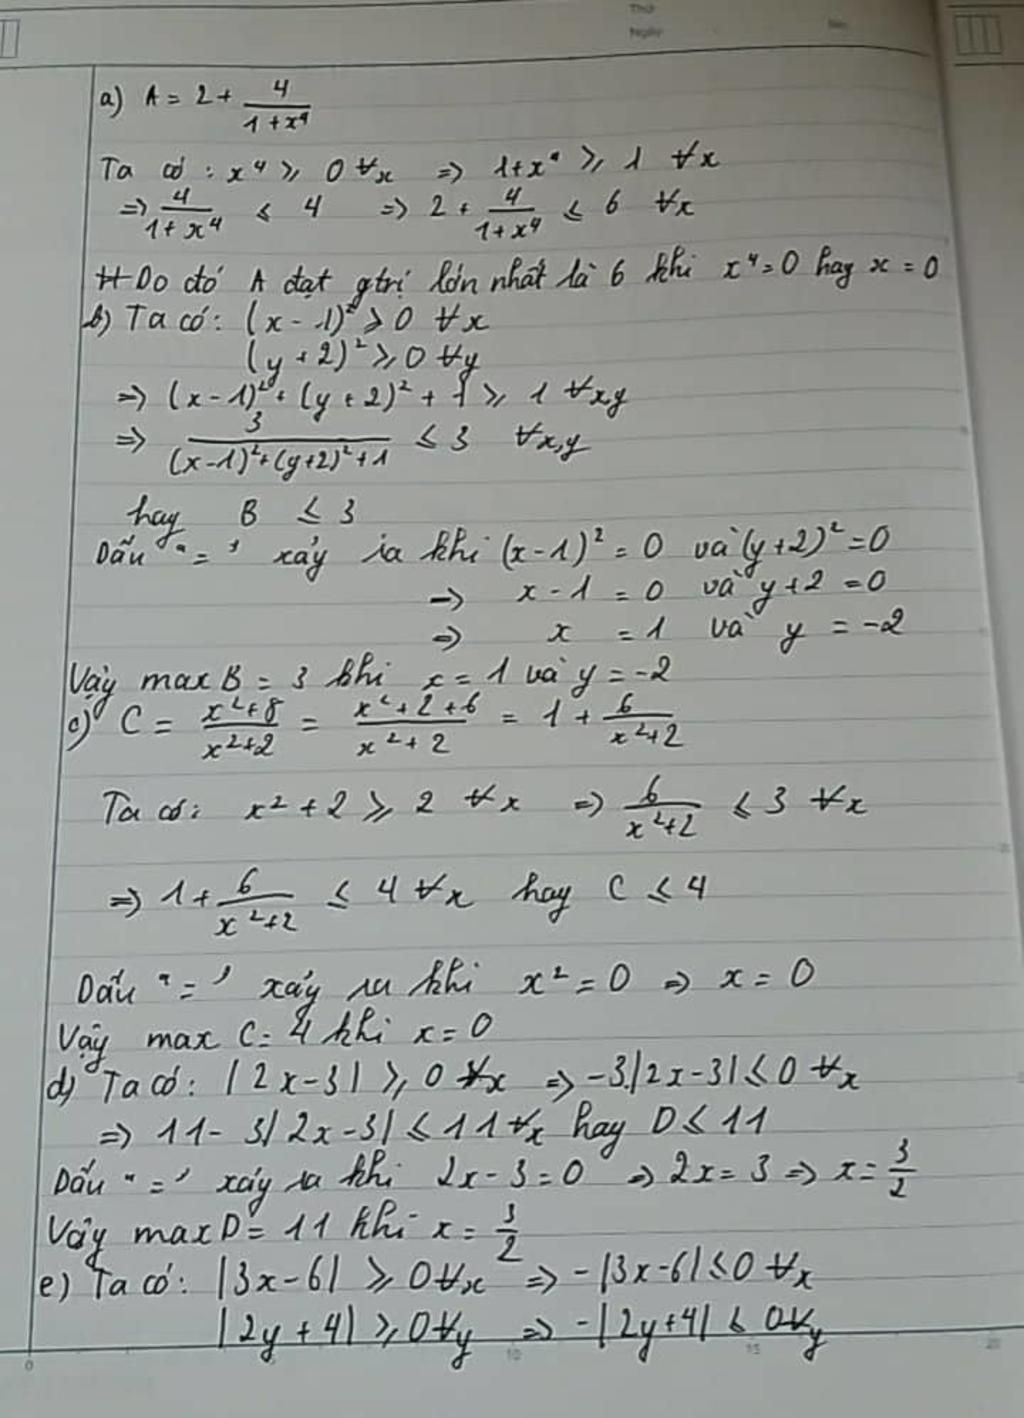 Thứ
Ngày No.
a) A = 2 + 4/(1 + x⁴)
Ta có : x⁴ ⩾ 0 ∀x => 1+x⁴ ⩾ 1 ∀x
=> 4/(1 + x⁴) ⩽ 4 => 2 + 4/(1+x⁴) ⩽ 6 ∀x
Do đó A đạt gtrị lớn nhất là 6 khi x⁴=0 hay x = 0
b) Ta có: (x - 1)² ⩾ 0 ∀x
(y + 2)² ⩾ 0 ∀y
=> (x - 1)² + (y + 2)² + 1 ⩾ 1 ∀xy
=> 3/((x-1)²+(y+2)²+1) ⩽ 3 ∀x,y
hay B ⩽ 3
Dấu "=' xảy ra khi (x-1)² = 0 và (y+2)² = 0
=> x - 1 = 0 và y + 2 = 0
=> x = 1 và y = -2
Vậy max B = 3 khi x = 1 và y = -2
c) C = (x²+8)/(x²+2) = (x²+2+6)/(x²+2) = 1 + 6/(x²+2)
Ta có: x² + 2 ⩾ 2 ∀x => 6/(x²+2) ⩽ 3 ∀x
=> 1 + 6/(x²+2) ⩽ 4 ∀x hay C ⩽ 4
Dấu "=' xảy ra khi x² = 0 => x = 0
Vậy max C = 4 khi x = 0
d) Ta có: |2x-3| ⩾ 0 ∀x => -3.|2x-3| ⩽ 0 ∀x
=> 11 - 3|2x-3| ⩽ 11 ∀x hay D ⩽ 11
Dấu "=' xảy ra khi 2x - 3 = 0 => 2x = 3 => x = 3/2
Vậy max D = 11 khi x = 3/2
e) Ta có: |3x-6| ⩾ 0 ∀x => -|3x-6| ⩽ 0 ∀x
|2y+4| ⩾ 0 ∀y => -|2y+4| ⩽ 0 ∀y
0 5 10 15 20